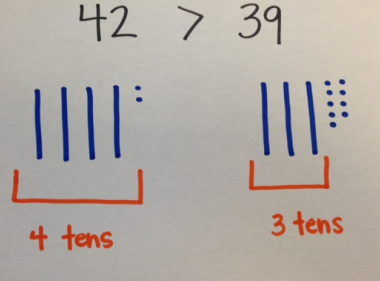 42 > 39
4 tens
3 tens